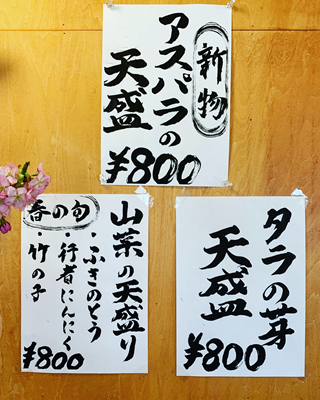 新物
アスパラの
天盛
¥800
春の旬
山菜の天盛り
・ふきのとう
・行者にんにく
・竹の子
¥800
タラの芽
天盛
¥800